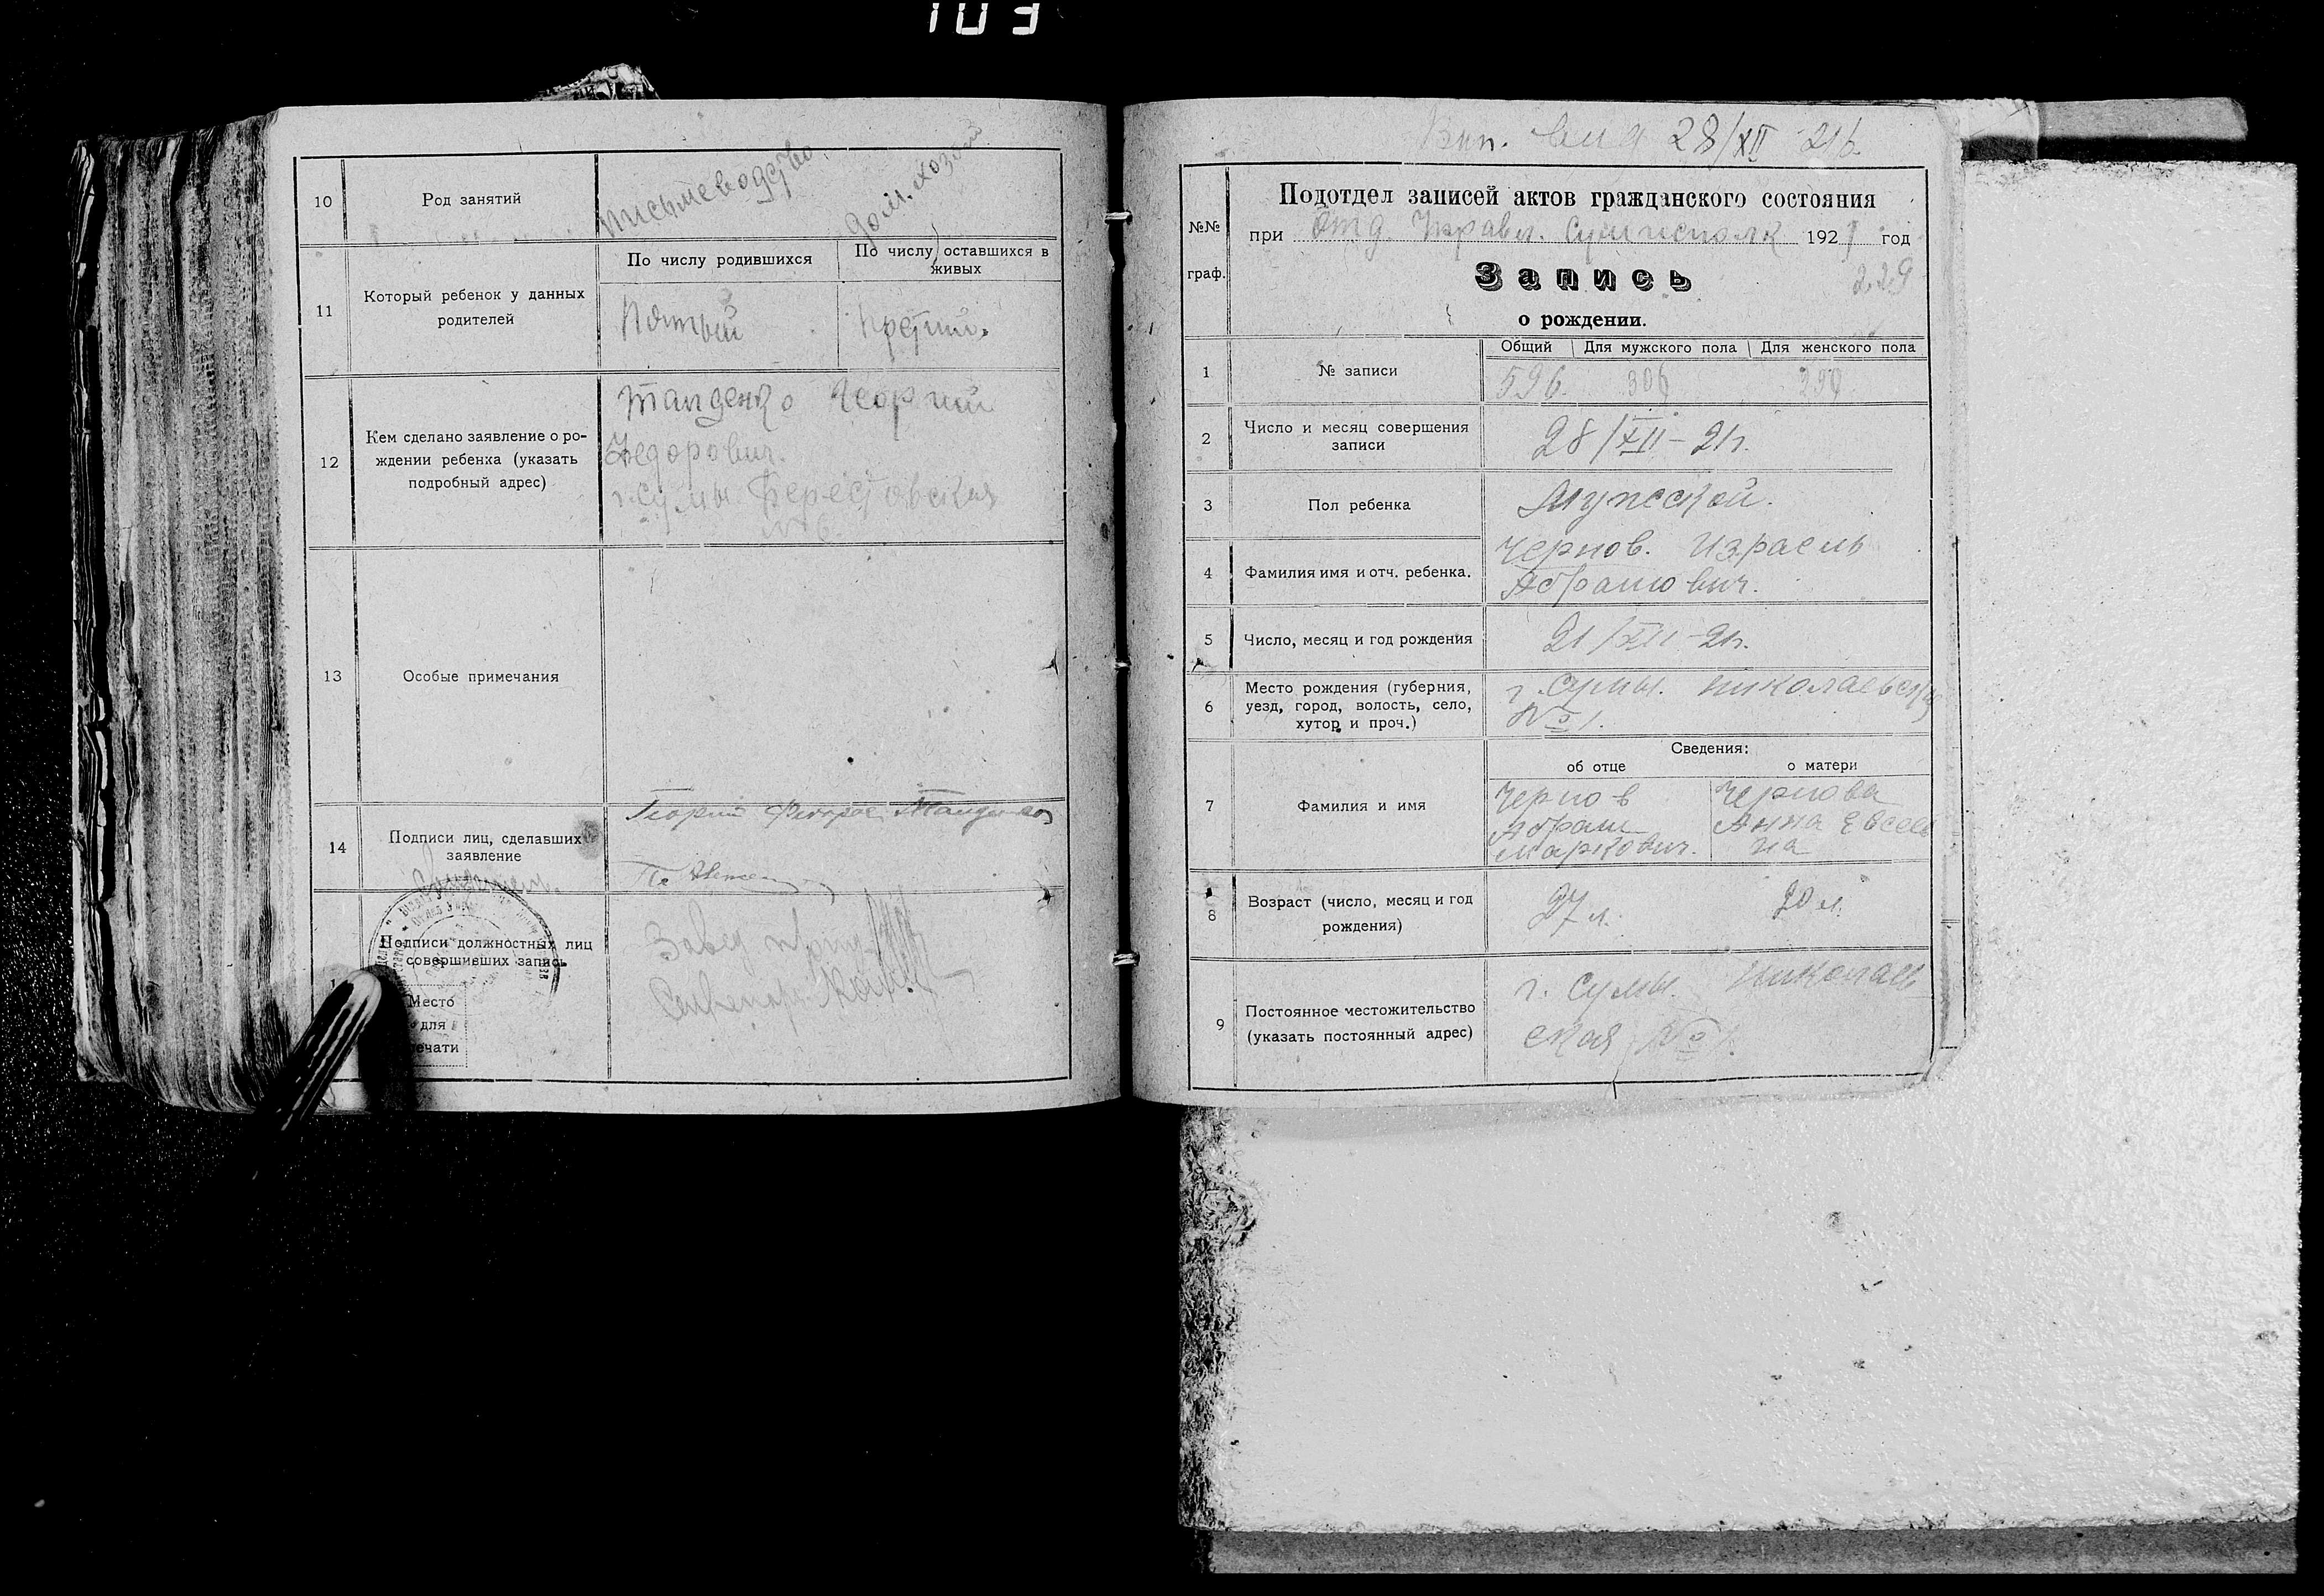 103
10
Род занятий
письмоводство
дом. хозяй
11
Который ребенок у данных
родителей
По числу родившихся
По числу оставшихся в
живых
Пятый
третий.
12
Кем сделано заявление о ро-
ждении ребенка (указать
подробный адрес)
Георгий
Федорович.
г. Сумы Берестовская
№ 6.
13
Особые примечания
14
Подписи лиц, сделавших
заявление
Георгий
Подписи должностных лиц
совершивших запись
Завед
Место
для
ечати
28/XII-21г.
№№
граф.
Подотдел записей актов гражданского состояния
при Отд. Управл. Сумисполк 1921 год
Запись
229
о рождении.
1
№ записи
Общий
Для мужского пола
Для женского пола
596.
306
290
2
Число и месяц совершения
записи
28/XII-21г.
3
Пол ребенка
Мужской.
4
Фамилия имя и отч. ребенка.
Чернов. Израель
Абрамович.
5
Число, месяц и год рождения
21/XII-21г.
6
Место рождения (губерния,
уезд, город, волость, село,
хутор и проч.)
г. Сумы. Николаевская
№ 1.
7
Фамилия и имя
Сведения:
об отце
о матери
Чернов
Абрам
Маркович.
Чернова
Анна Евсее
на
8
Возраст (число, месяц и год
рождения)
27 л.
20 л.
9
Постоянное местожительство
(указать постоянный адрес)
г. Сумы. Николаев
ская № 1.